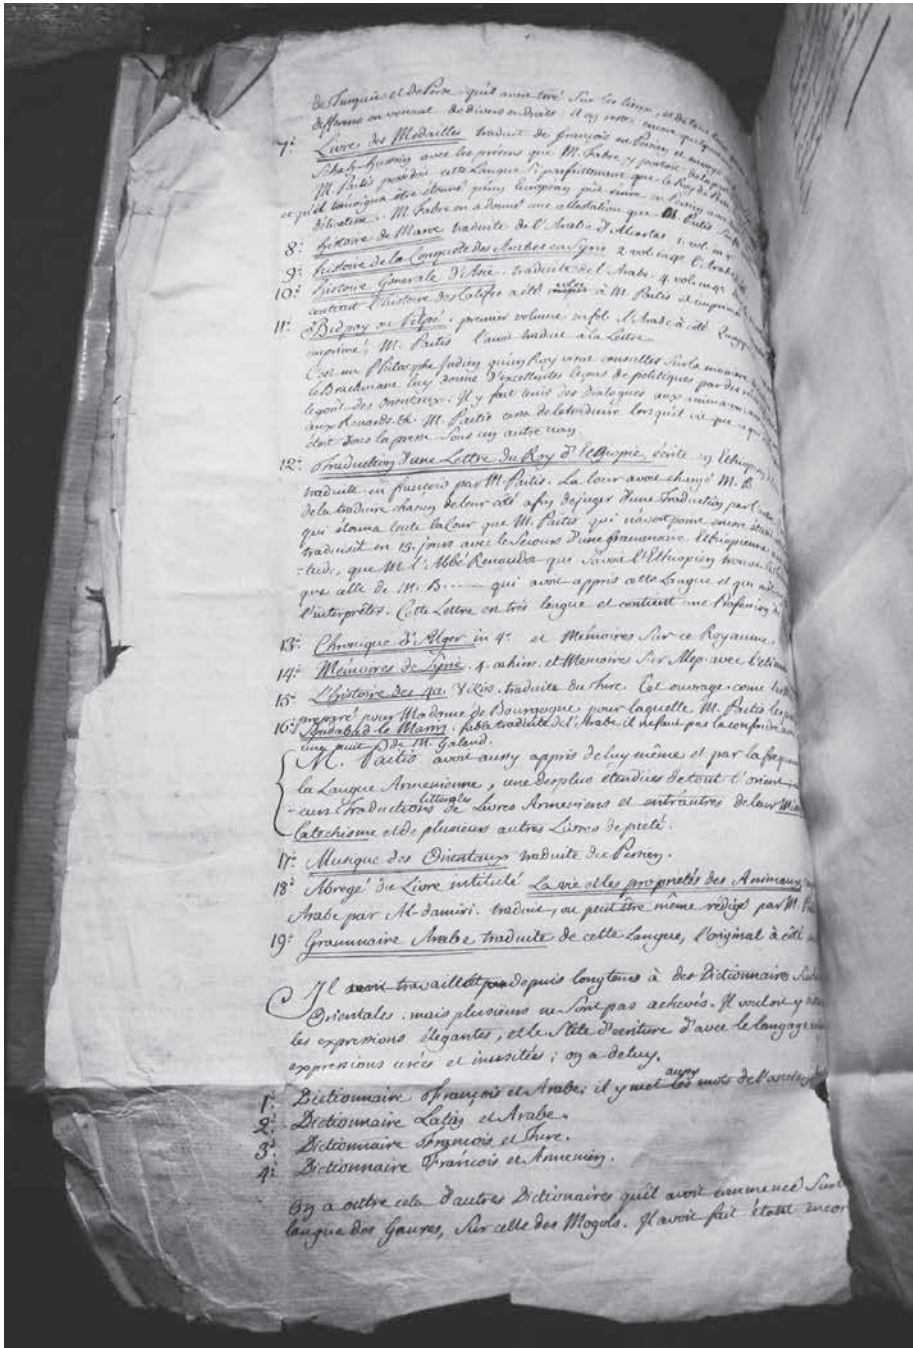 de Turquie et de Perse qu'il avoit tiré Sur les lieux, et de tous
differens en venant de divers endroits. il en reste encore quelques
7.° Livre des Medailles traduit de françois en Persien et envoyé
Schah-Hussein avec les présens que M. Fabre y portoit de la part
M. Paitis possedoit cette Langue Si parfaittement que le Roy de Perse
et qu'il temoigna être étonné qu'un Européen pût écrire en Persien avec
délicatesse. M. Fabre en a donné une attestation que M. Paitis
8.° histoire de Maroc traduite de l'Arabe d'Alcartas 1. vol. in 4
9.° histoire de la Conqueste des Arabes en Syrie 2. vol. in 4.° l'Arabe
10.° histoire Generale d'Asie traduite de l'Arabe. 4. vol. in 4.°
contenant l'histoire des Califes a été à M. Paitis et imprimé
11.° Bidpay ou Pilpé. premier volume in fol. l'Arabe à côté
imprimé; M. Paitis l'avoit traduit à la Lettre.
C'est un Philosophe Indien qu'un Roy vient consulter Sur la maniere
le Brachmane luy donne d'excellentes leçons de politiques par des
le goût des Orientaux. Il y fait tenir des Dialogues aux animaux
aux Renards. &c. M. Paitis cessa de le traduire lorsqu'il vit que
étoit Sous la presse Sous un autre nom.
12.° Traduction d'une Lettre du Roy d'Ethiopie, écrite en Ethiopien
traduite en françois par M. Paitis. La Cour avoit chargé M. B.
de la traduire chacun de leur côté afin de juger d'une Traduction par
qui étonna toute la Cour que M. Paitis qui n'avoit point encore
traduisit en 15. jours avec le Secours d'une grammaire Ethiopienne
-tude, que M. l'Abbé Renaudot qui Savoit l'Ethiopien trouva
que celle de M. B..... qui avoit appris cette Langue et qui
l'interprêter. Cette Lettre est très longue et contient une Profession de
13.° Chronique d'Alger in 4.° et Mémoires Sur ce Royaume.
14.° Mémoires de Syrie. 4. cahiers. et Memoires Sur Alep avec
15.° L'histoire des 40. Vizirs. traduite du Turc. Cet ouvrage come
preparé pour Madame de Bourgogne pour laquelle M. Paitis
16.° Sindabad le Marin. fable traduite de l'Arabe il ne faut pas la confondre
une nuit de M. Galand.
M. Paitis avoit aussy appris de luy même et par la
la Langue Armenienne, une des plus étendües de tout l'orient
-eurs Traductions litterales de Livres Armeniens et entr'autres de leur
Catechisme et de plusieurs autres Livres de pieté.
17.° Musique des Orientaux traduite du Persien.
18.° Abregé du Livre intitulé La vie et les proprietés des Animaux
Arabe par Al-damiri. traduit, ou peut être même redigé par M.
19.° Grammaire Arabe traduite de cette Langue, l'original à côté
Il avoit travaillé depuis longtems à des Dictionnaires
Orientales. mais plusieurs ne Sont pas achevés. Il vouloit y
les expressions élegantes, et le Stile d'ecriture d'avec le langage
expressions usées et inusitées; on a de luy.
1.° Dictionnaire François et Arabe; il y met aussy les mots de
2.° Dictionnaire Latin et Arabe.
3.° Dictionnaire François et Turc.
4.° Dictionnaire François et Armenien.
On a outre cela d'autres Dictionaires qu'il avoit commencé Sur
langue des Gaures, Sur celle des Mogols. Il avoit fait étant